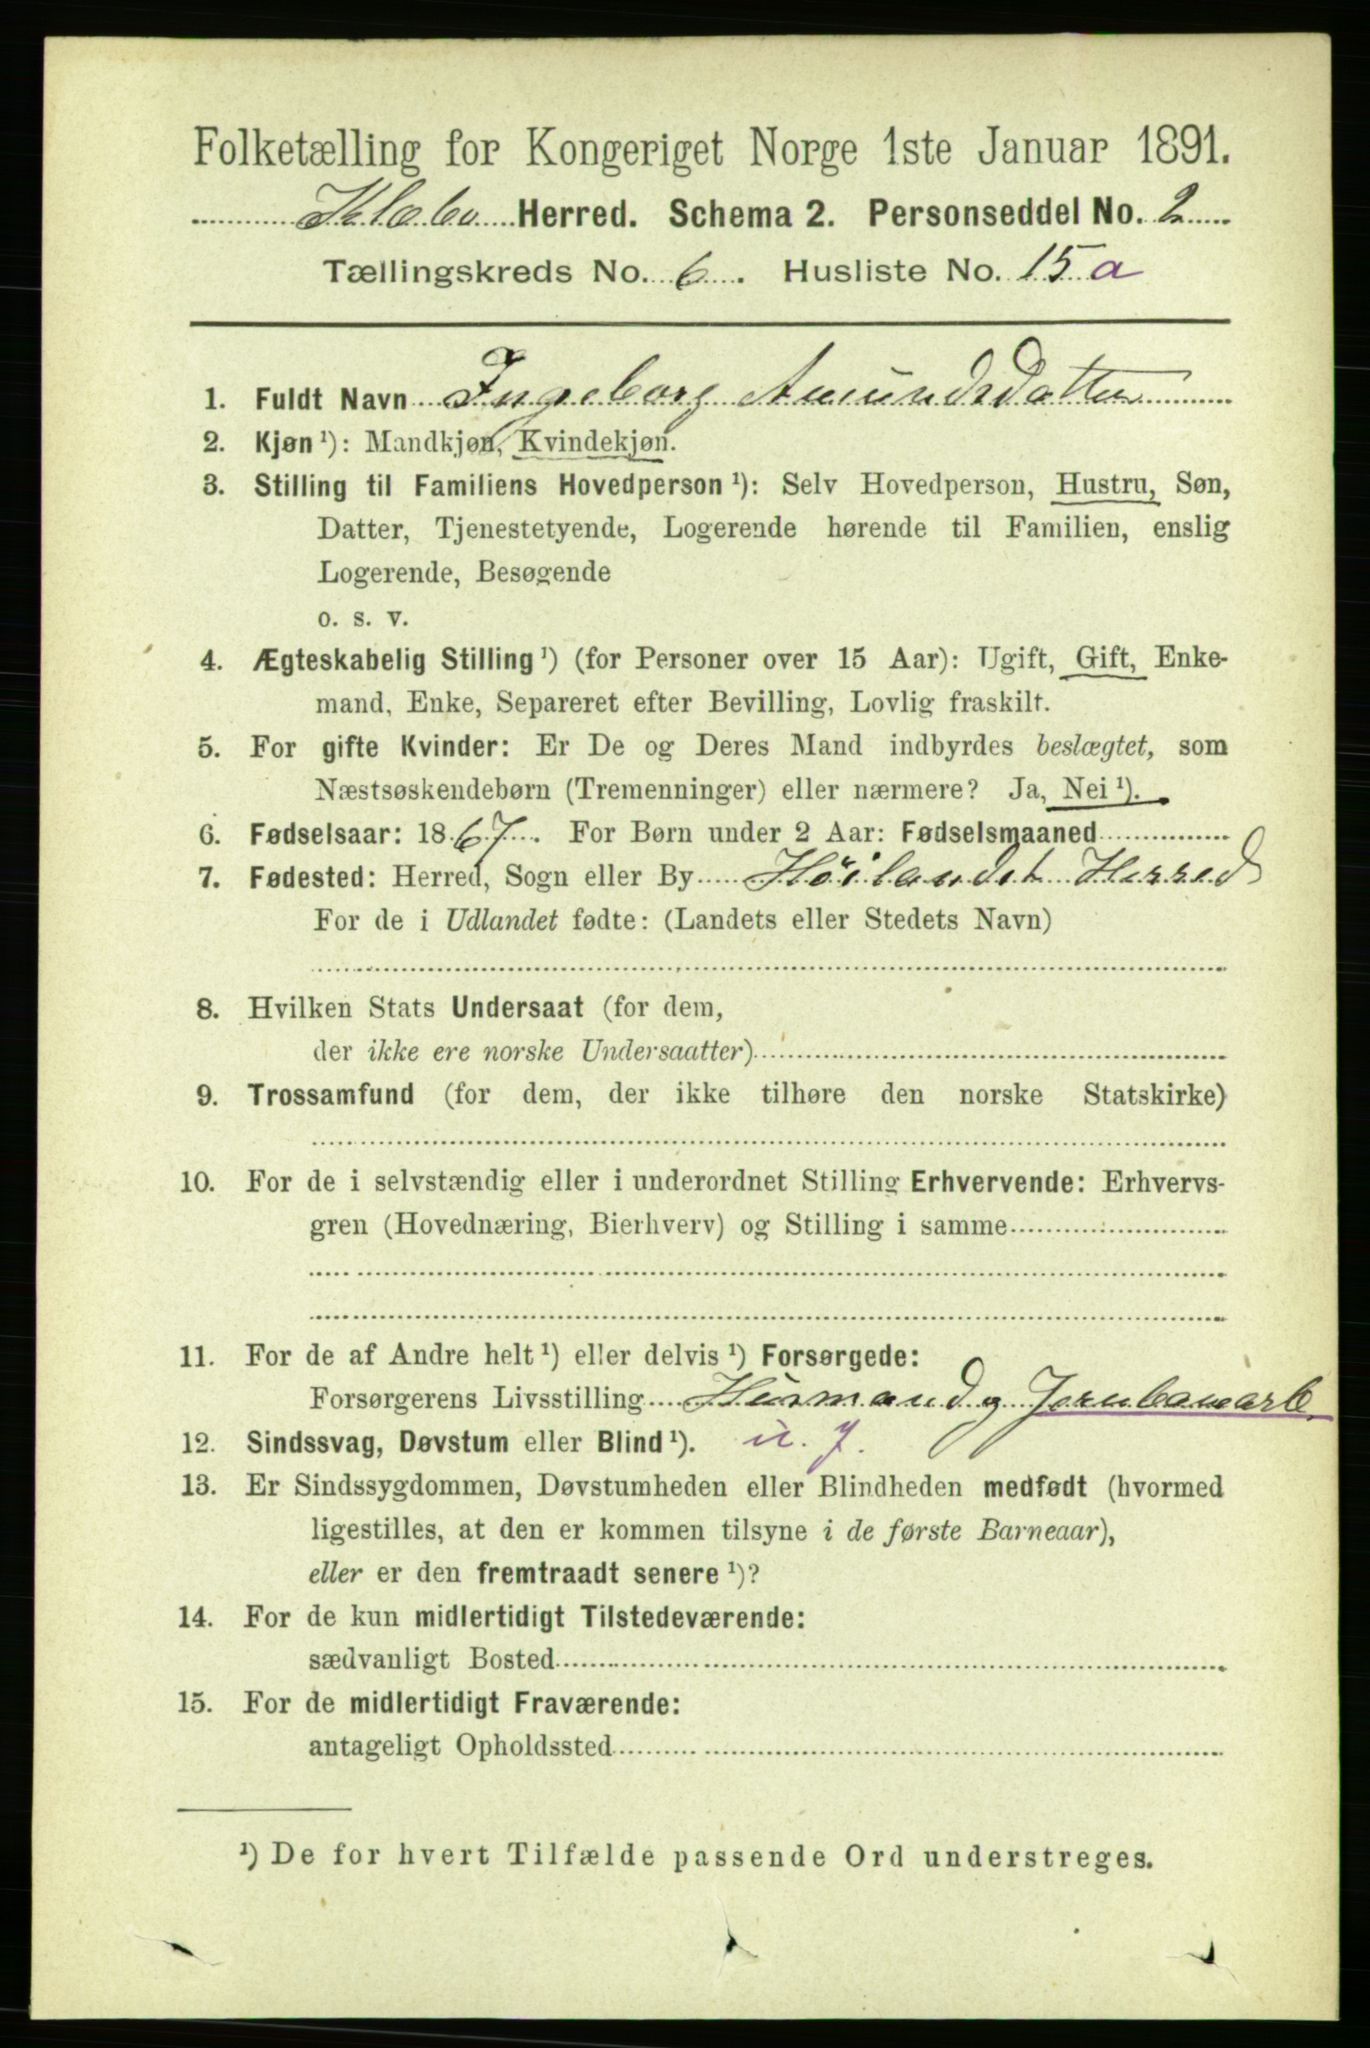 Folketælling for Kongeriget Norge 1ste Januar 1891.
Klæbu Herred. Schema 2. Personseddel No. 2
Tællingskreds No. 6. Husliste No. 15 a
1. Fuldt Navn Ingeborg Amundsdatter
2. Kjøn ¹): Mandkjøn, Kvindekjøn.
3. Stilling til Familiens Hovedperson ¹): Selv Hovedperson, Hustru, Søn,
Datter, Tjenestetyende, Logerende hørende til Familien, enslig
Logerende, Besøgende
o. s. v.
4. Ægteskabelig Stilling ¹) (for Personer over 15 Aar): Ugift, Gift, Enke-
mand, Enke, Separeret efter Bevilling, Lovlig fraskilt.
5. For gifte Kvinder: Er De og Deres Mand indbyrdes beslægtet, som
Næstsøskendebørn (Tremenninger) eller nærmere? Ja, Nei ¹).
6. Fødselsaar: 1867. For Børn under 2 Aar: Fødselsmaaned
7. Fødested: Herred, Sogn eller By Höilandet Herred
For de i Udlandet fødte: (Landets eller Stedets Navn)
8. Hvilken Stats Undersaat (for dem,
der ikke ere norske Undersaatter)
9. Trossamfund (for dem, der ikke tilhøre den norske Statskirke)
10. For de i selvstændig eller i underordnet Stilling Erhvervende: Erhvervs-
gren (Hovednæring, Bierhverv) og Stilling i samme
11. For de af Andre helt ¹) eller delvis ¹) Forsørgede:
Forsørgerens Livsstilling Husmand og Jernbanearb.
12. Sindssvag, Døvstum eller Blind ¹).
13. Er Sindssygdommen, Døvstumheden eller Blindheden medfødt (hvormed
ligestilles, at den er kommen tilsyne i de første Barneaar),
eller er den fremtraadt senere ¹)?
14. For de kun midlertidigt Tilstedeværende:
sædvanligt Bosted
15. For de midlertidigt Fraværende:
antageligt Opholdssted
¹) De for hvert Tilfælde passende Ord understreges.